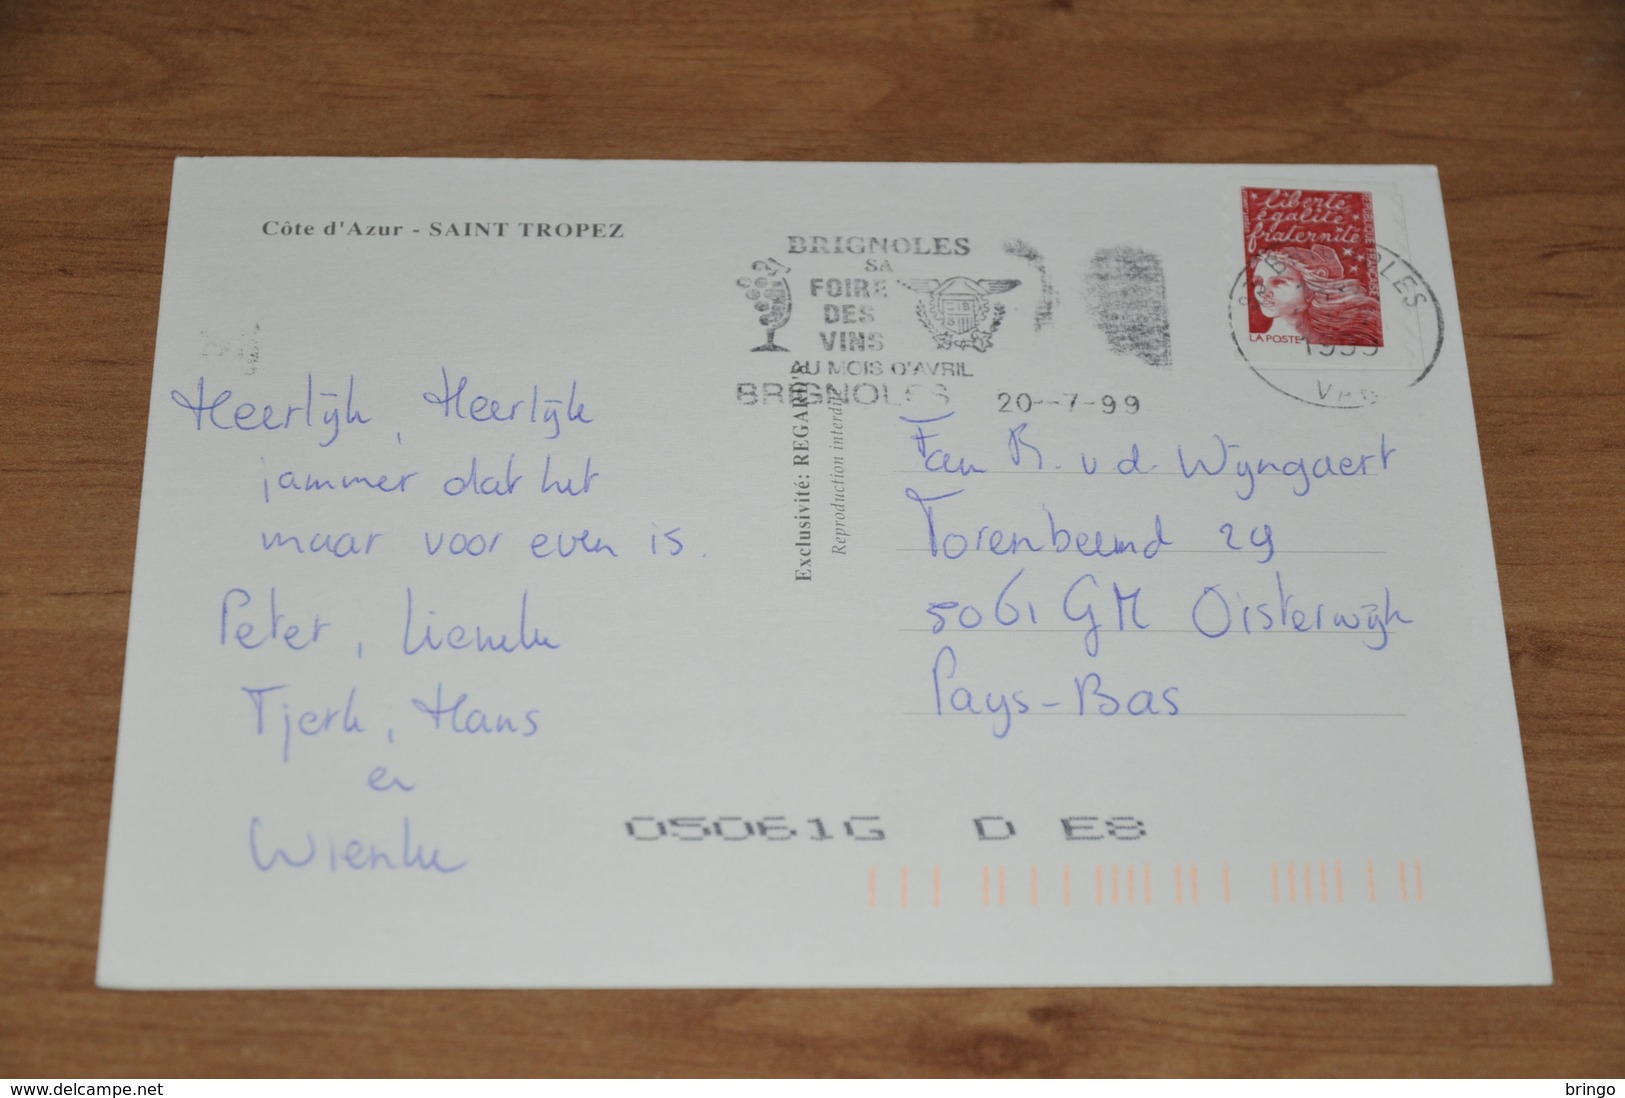 Côte d'Azur - SAINT TROPEZ
BRIGNOLES
SA
FOIRE
DES
VINS
AU MOIS D'AVRIL
BRIGNOLES 20-7-99
liberté
égalité
fraternité
LA POSTE
1999
VAR
Heerlijk, Heerlijk
jammer dat het
maar voor even is.
Peter, Lieneke
Tjerk, Hans
en
Wieneke
Exclusivité: REGARD'S
Reproduction interdite
Fam R. v.d. Wijngaert
Torenbeemd 29
5061 GM Oisterwijk
Pays-Bas
05061G D E8
www.delcampe.net
bringo